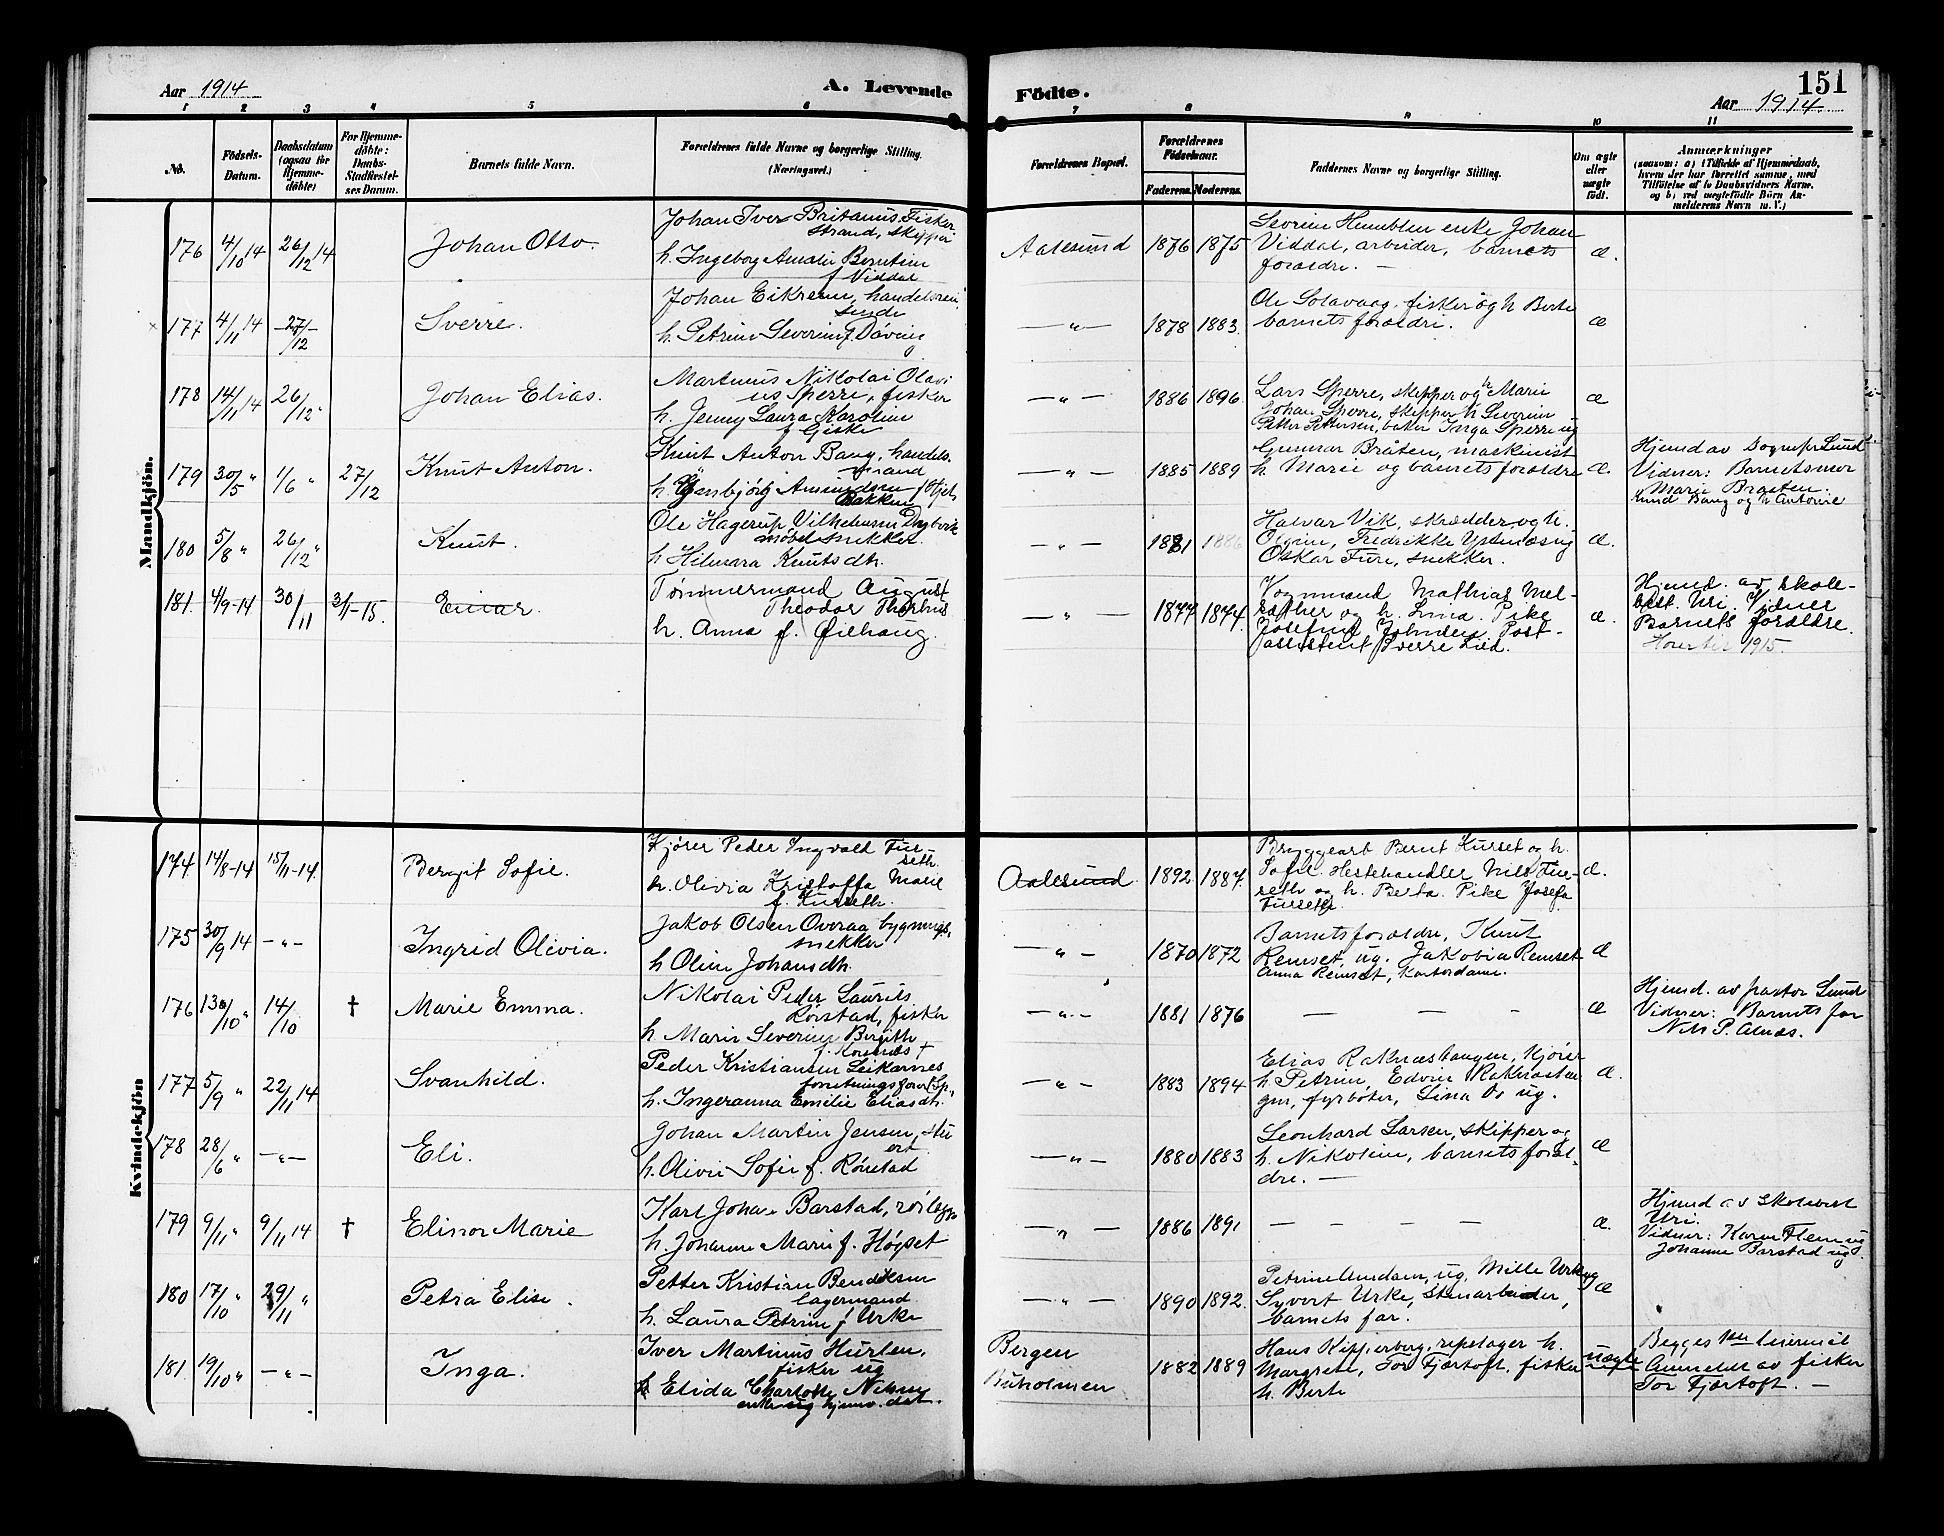 151
Aar 1914
A. Levende Födte.
Aar 1914
1 2 3 4 5 6 7 8 9 10 11
No.
Födsels-Datum.
Daabsdatum (ogsaa for Hjemme-døbte)
For Hjemme-døbte: Daabs-Stadfæstelses Datum.
Barnets fulde Navn.
Forældrenes fulde Navne og borgerlige Stilling. (Næringsvei.)
Forældrenes Bopæl.
Forældrenes Födselsaar.
Faderens. Moderens.
Faddernes Navne og borgerlige Stilling.
Om ægte eller uægte født.
Anmærkninger
(saasom: a) i Tilfælde af Hjemmedaab, hvem der har forrettet samme, med Tilføielse af to Daabsvidners Navne, og b) ved uægtefødte Børn Anmelderens Navn m. V.)
Mandkjön.
176 4/10 14 26/12 14 Johan Otto.
Johan Iver Britanus Fisker
strand, skipper
h. Ingeborg Amalie Berntine
f Viddal
Aalesund 1876 1875
Severine Humblen enke Johan
Viddal, arbeider, barnets
forældre. — æ.
177 4/11 14 27/12 Sverre.
Johan Eikrem, handelsrei
sende
h. Petrine Severine f. Døving
— " — 1878 1883.
Ole Solavaag, fisker og h Berte
barnets forældre. æ
178 14/11 14 26/12 " Johan Elias.
Martinus Nikolai Olavi
us Sperre, fisker
h. Jenny Laura Karoline
f. Giske
— " — 1886 1896.
Lars Sperre, skipper og h Marie
Johan Sperre, skipper h Severine
Petter Pettersen, baker Inga Sperre ug æ
179 30/5 " 1/6 " 27/12 Knut Anton.
Knut Anton Bang, handels.
mand
— " — 1885 1889
Gunnar Bråten, maskinist
h. Marie og barnets forældre æ.
Hjemd av Sognepr Lund
Vidner: Barnets mor
Marie Braaten.
Knud Bang og h Antonie
180 5/8 " 26/12 " Knut.
Ole Hagerup Vilhelmsen Dybvik
møbelsnekker
h Hilmara Knutsdh.
— " — 1881 1886
Halvar Vik, skrædder og h.
Olgine, Fredrikke Ystenæs ug
Oskar Fure, snekker. æ.
181. 4/9-14 30/11 3/1-15. Einar.
Tømmermand August
Theodor Thorhus
h. Anna f. Øilhaug.
— " — 1877 1874.
Vognmand Mathias Mel-
sæther og h. Lina. Pike
Josefine Johnsen. Post-
assistent Sverre Lied. æ.
Hjemd. av skole-
best. Uri. Vidner
Barnets forældre.
1915.
Kvindekjön
174 14/8-14 15/11-14. Bergit Sofie.
Kjører Peder Ingvald Fur-
seth.
h. Olivia Kristoffa Marie
f. Kurseth.
Aalesund 1892 1887.
Bryggearb Bernt Kurset og h.
Sofie. Hestehandler Nils Fur-
seth og h. Berta. Pike Josefa
Furseth. æ.
175 30/9 14 — " — Ingrid Olivia.
Jakob Olsen Overaa bygnings.
snekker
h Oline Johansdh.
— " — 1870 1872
Barnets forældre, Knut
Remset, ug. Jakobia Remset
Anna Remset, Kontordame. æ
176 13/10 " 14/10 † Marie Emma.
Nikolai Peder Laurits
Rørstad, fisker
h. Marie Severine Birgithe
f. Kornes †
— " — 1881 1876 — — - æ
Hjemd. av pastor Lund
Vidner: Barnets far
Nils P. Alnæs.
177 5/9 " 22/11 14 Svanhild.
Peder Kristiansen Leikarnes
h. Ingeranna Emilie Eliasdh.
— " — 1883 1894
Elias Raknæshaugen, Kjører
h. Petrine, Edvin Raknæshau
gen, fyrbøter, Lina Do ug. æ.
178 28/6 " — " — Eli.
Johan Martin Jensen, stu
ert
h. Olivie Sofie f. Rønstad
— " — 1880 1883
Leonhard Larsen, skipper og
h. Nikoline, barnets foræl-
dre. — æ
179 9/11 " 9/11 14 † Elinor Marie
Karl Johan Barstad, rørlegger
h. Johanne Marie f. Høgset
— " — 1886 1891 — — — — æ.
Hjemd av Skolebest
Uri.
Vidner: Karen Flem ug
Johanne Barstad ug.
180 17/10 " 29/11 " Petra Elise.
Petter Kristian Bendiksen
lagermand
h. Laura Petrine f Urke
— " — 1890 1892.
Petrine Amdam, ug, Mille Urke ug
Syvert Urke, stenarbeider,
barnets far. æ
181. 19/10 " — " — Inga.
Iver Martinus Hurlen,
fisker ug
Elida Charlotte
enke ug hjemv. dat.
Bergen
Buholmen
1882 1889
Hans Kipperberg, repslager h.
Margrete, Tor Fjørtoft, fisker
h. Berte
uægte
Begges 1ste leiermål
Anmeldt av fisker
Tor Fjørtoft. —